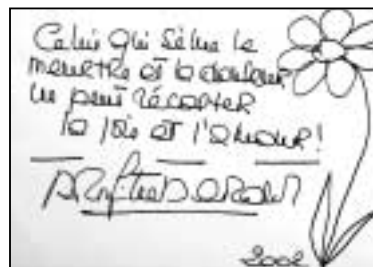 Celui qui sème le
meurtre et la douleur
ne peut récolter
la joie et l'amour!
2002